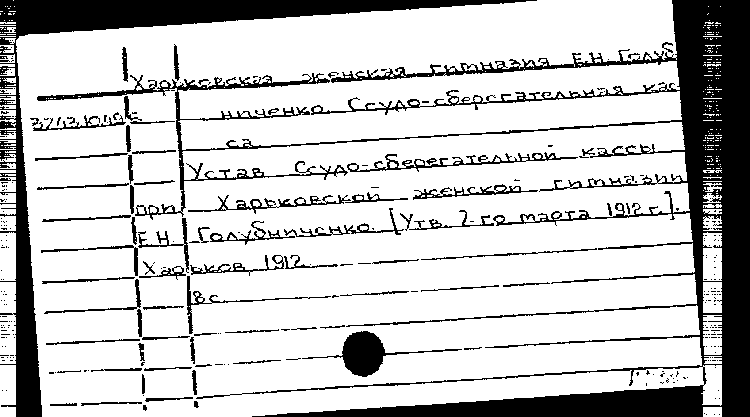 Харьковская женская гимназия Е.Н. Голуб
ниченко. Ссудо-сберегательная кас
са.
Устав Ссудо-сберегательной кассы
при Харьковской женской гимназии
Е.Н. Голубниченко. [Утв. 2-го марта 1912 г.].
Харьков, 1912.
8 с.